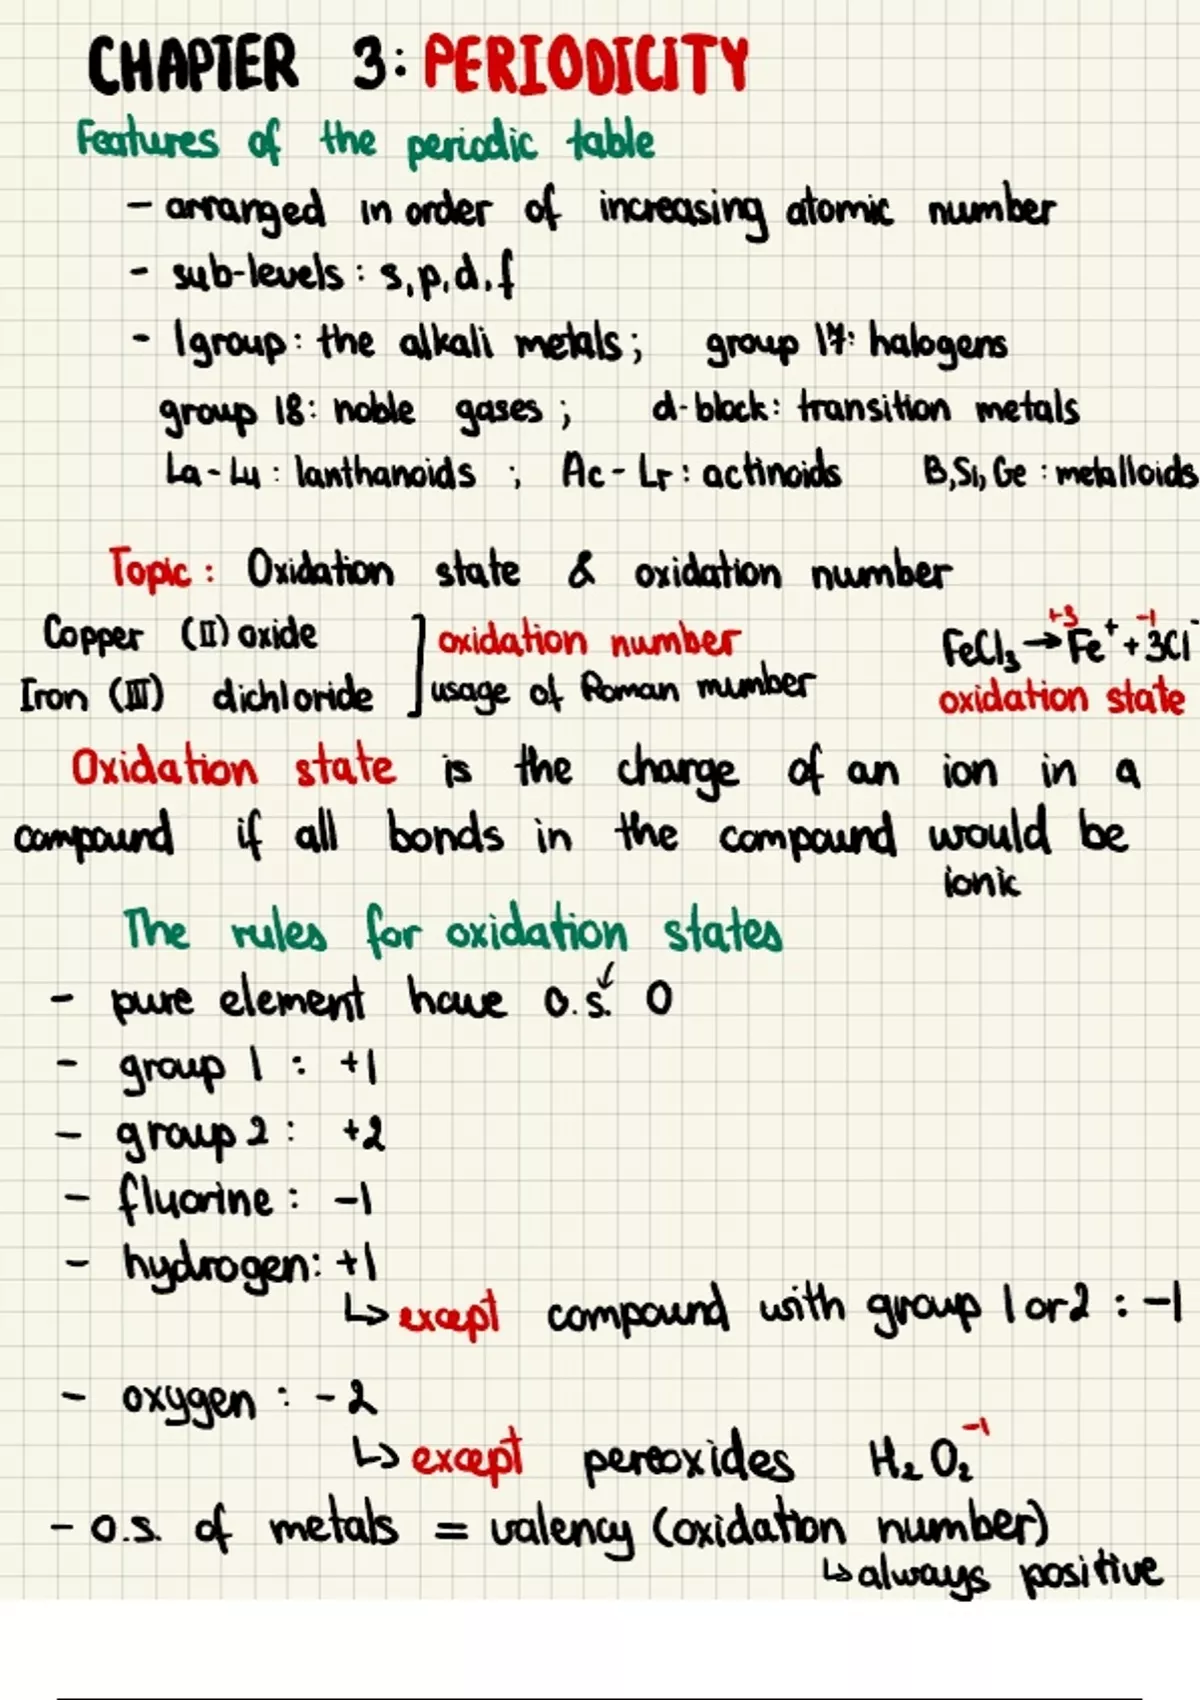 CHAPTER 3: PERIODICITY
Features of the periodic table
- arranged in order of increasing atomic number
- sub-levels: s, p, d, f
- 1 group: the alkali metals; group 17: halogens
group 18: noble gases; d-block: transition metals
La-Lu: lanthanoids; Ac-Lr: actinoids B, Si, Ge: metalloids
Topic: Oxidation state & oxidation number
Copper (II) oxide ] oxidation number FeCl₃ → Fe⁺ + 3Cl⁻ +3 -1
Iron (III) dichloride ] usage of Roman mumber oxidation state
Oxidation state is the charge of an ion in a
compound if all bonds in the compound would be
ionic
The rules for oxidation states
- pure element have o.s. ↙ 0
- group 1: +1
- group 2: +2
- fluorine: -1
- hydrogen: +1
↳ except compound with group 1 or 2: -1
- oxygen: -2
↳ except pereoxides H₂O₂⁻¹
- o.s. of metals = valency (oxidation number)
↳ always positive